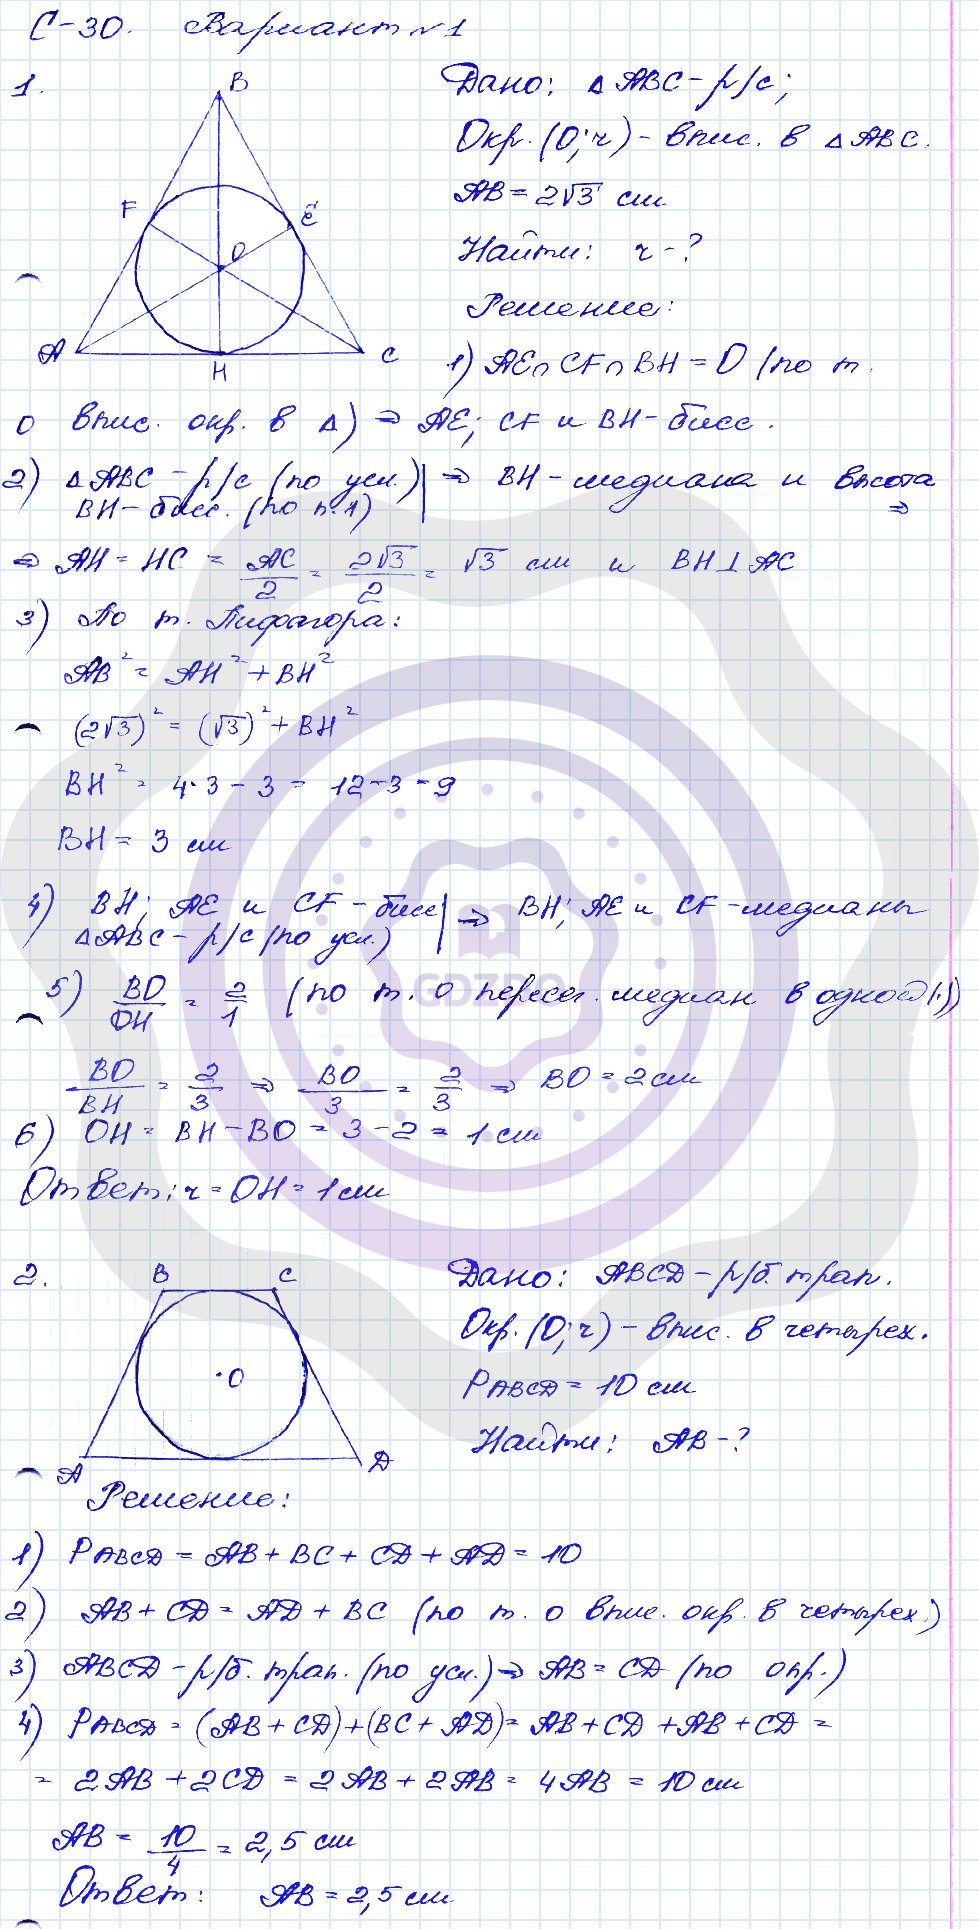 С-30. Вариант №1
1.
B
F
E
O
A
H
C
Дано: △ABC-р/с;
Окр.(O;r)-впис. в △ABC.
AB=2√3 см
Найти: r-?
Решение:
1) AE∩CF∩BH=O (по т.
о впис. окр. в △) ⇒ AE; CF и BH-бисс.
2) △ABC-р/с (по усл.) | ⇒ BH-медиана и высота
BH-бисс. (по п.1) ⇒
⇒ AH=HC=AC/2=2√3/2=√3 см и BH⊥AC
3) По т. Пифагора:
AB²=AH²+BH²
(2√3)²=(√3)²+BH²
BH²=4·3-3=12-3=9
BH=3 см
4) BH; AE и CF-бисс | ⇒ BH; AE и CF-медианы
△ABC-р/с (по усл.)
GDZPRO
5) BO/OH=2/1 (по т. о пересеч. медиан в одной (·))
BO/BH=2/3 ⇒ BO/3=2/3 ⇒ BO=2см
6) OH=BH-BO=3-2=1 см
Ответ: r=OH=1см
2.
B C
O
A D
Дано: ABCD-р/б. трап.
Окр.(O;r)-впис. в четырех.
PABCD=10 см
Найти: AB-?
Решение:
1) PABCD=AB+BC+CD+AD=10
2) AB+CD=AD+BC (по т. о впис. окр. в четырех.)
3) ABCD-р/б. трап. (по усл.) ⇒ AB=CD (по опр.)
4) PABCD=(AB+CD)+(BC+AD)=AB+CD+AB+CD=
=2AB+2CD=2AB+2AB=4AB=10 см
AB=10/4=2,5 см
Ответ: AB=2,5 см